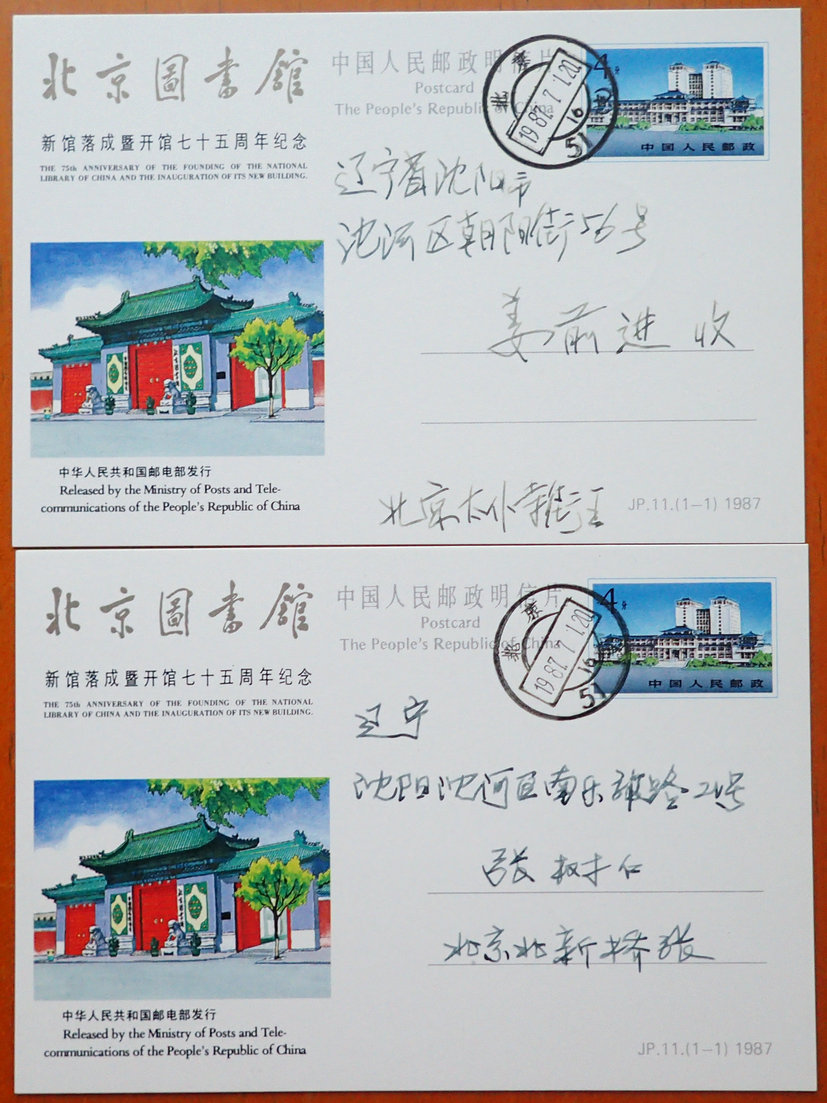 北京圖書館
新馆落成暨开馆七十五周年纪念
THE 75th ANNIVERSARY OF THE FOUNDING OF THE NATIONAL
LIBRARY OF CHINA AND THE INAUGURATION OF ITS NEW BUILDING.
中华人民共和国邮电部发行
Released by the Ministry of Posts and Tele-
communications of the People's Republic of China
中国人民邮政明信片
Postcard
The People's Republic of China
4分
中国人民邮政
北京
1987.7.1.20
16
51
辽宁省沈阳市
沈河区朝阳街56号
姜前进 收
北京太仆寺街王
JP.11.(1-1) 1987
北京圖書館
新馆落成暨开馆七十五周年纪念
THE 75th ANNIVERSARY OF THE FOUNDING OF THE NATIONAL
LIBRARY OF CHINA AND THE INAUGURATION OF ITS NEW BUILDING.
中华人民共和国邮电部发行
Released by the Ministry of Posts and Tele-
communications of the People's Republic of China
中国人民邮政明信片
Postcard
The People's Republic of China
4分
中国人民邮政
北京
1987.7.1.20
16
51
辽宁
沈阳沈河区南乐郊路21号
张树仁
北京北新桥张
JP.11.(1-1) 1987